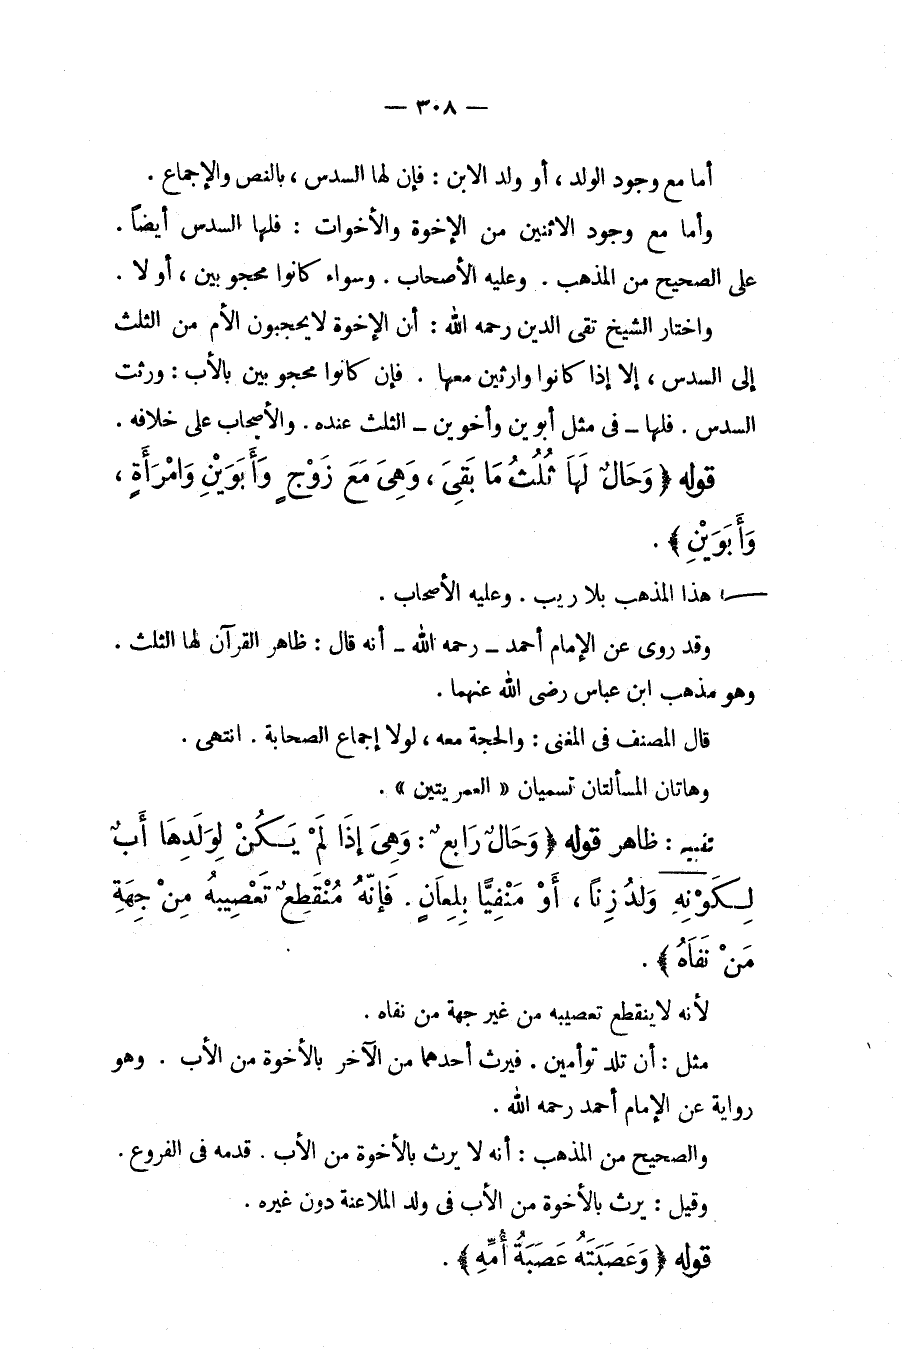 — ٣٠٨ —
أما مع وجود الولد ، أو ولد الابن : فإن لها السدس ، بالنص والإجماع .
وأما مع وجود الاثنين من الإخوة والأخوات : فلها السدس أيضاً .
على الصحيح من المذهب . وعليه الأصحاب . وسواء كانوا محجوبين ، أو لا .
واختار الشيخ تقى الدين رحمه الله : أن الإخوة لايحجبون الأم من الثلث
إلى السدس ، إلا إذا كانوا وارثين معها . فإن كانوا محجوبين بالأب : ورثت
السدس . فلها ـ فى مثل أبوين وأخوين ـ الثلث عنده . والأصحاب على خلافه .
قوله ﴿ وَحَالٌ لَهَا ثُلُثُ مَا بَقِىَ ، وَهِىَ مَعَ زَوْجٍ وَأَبَوَيْنِ وَامْرَأَةٍ ،
وَأَبَوَيْنِ ﴾ .
هذا المذهب بلا ريب . وعليه الأصحاب .
وقد روى عن الإمام أحمد ـ رحمه الله ـ أنه قال : ظاهر القرآن لها الثلث .
وهو مذهب ابن عباس رضى الله عنهما .
قال المصنف فى المغنى : والحجة معه ، لولا إجماع الصحابة . انتهى .
وهاتان المسألتان تسميان « العمريتين » .
تنبيه : ظاهر قوله ﴿ وَحَالٌ رَابِعٌ : وَهِىَ إِذَا لَمْ يَكُنْ لِوَلَدِهَا أَبٌ
لِكَوْنِهِ وَلَدُ زِنًا ، أَوْ مَنْفِيًّا بِلِعَانٍ . فَإِنَّهُ مُنْقَطِعٌ تَعْصِيبهُ مِنْ جِهَةِ
مَنْ نَفَاهُ ﴾ .
لأنه لاينقطع تعصيبه من غير جهة من نفاه .
مثل : أن تلد توأمين . فيرث أحدهما من الآخر بالأخوة من الأب . وهو
رواية عن الإمام أحمد رحمه الله .
والصحيح من المذهب : أنه لا يرث بالأخوة من الأب . قدمه فى الفروع .
وقيل : يرث بالأخوة من الأب فى ولد الملاعنة دون غيره .
قوله ﴿ وَعَصَبَتَهُ عَصَبَةُ أُمِّهِ ﴾ .